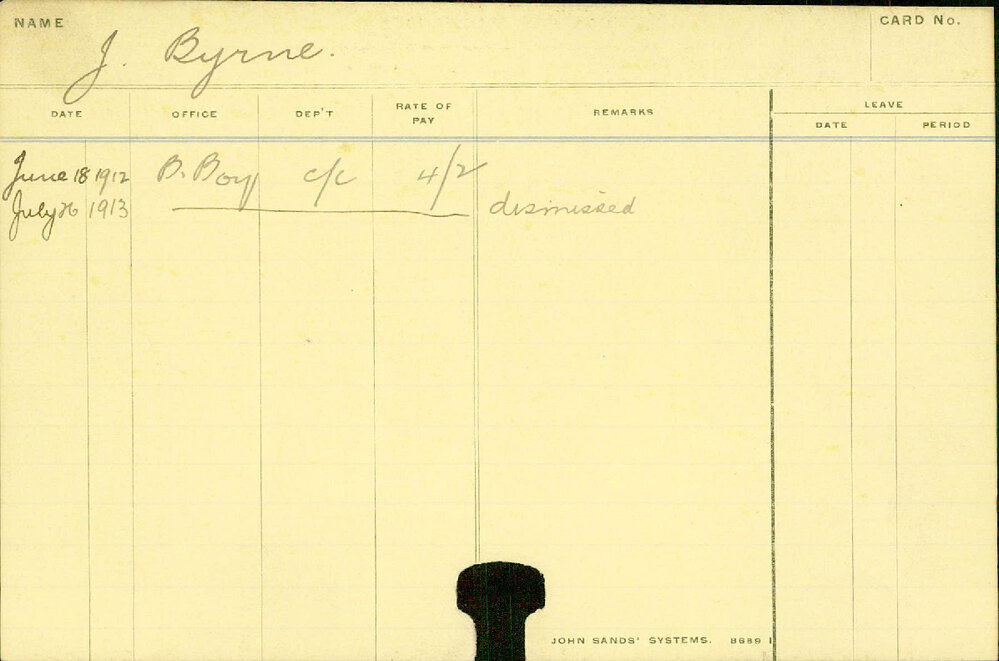 NAME J. Byrne. CARD No.
DATE OFFICE DEP'T RATE OF PAY REMARKS LEAVE
DATE PERIOD
June 18 1912 B. Boy c/c 4/2
July 26 1913 dismissed
JOHN SANDS' SYSTEMS. 8689